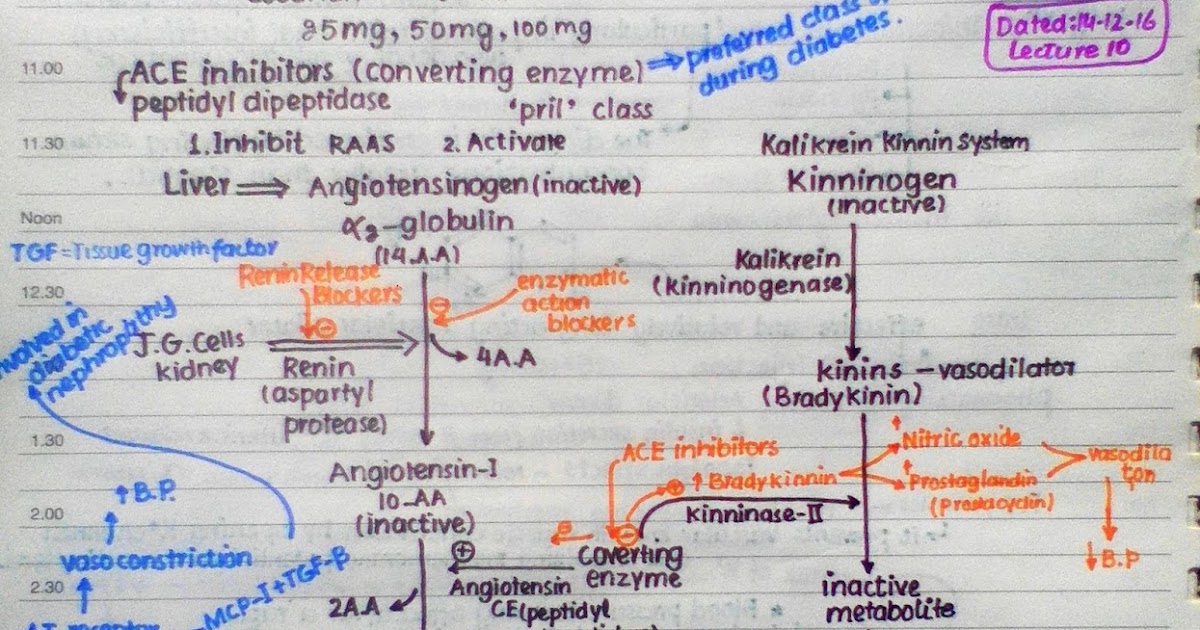 25mg, 50mg, 100 mg
Dated:14-12-16
Lecture 10
preferred class
during diabetes.
11.00
ACE inhibitors (converting enzyme)
peptidyl dipeptidase
'pril' class
11.30
1. Inhibit RAAS 2. Activate
Kalikrein Kinnin System
Liver ⟹ Angiotensinogen (inactive)
Kinninogen
(inactive)
Noon
α2-globulin
(14.A.A)
TGF=Tissue growth factor
Renin Release
Blockers
⊖
enzymatic
action
blockers
⊖
Kalikrein
(kinninogenase)
12.30
involved in
diabetic
nephropathy
J.G. Cells
kidney
Renin
(aspartyl
protease)
4A.A
kinins – vasodilator
(Bradykinin)
1.30
Angiotensin-I
10-AA
(inactive)
↑B.P.
ACE inhibitors
⊕ ↑ Bradykinnin
↑ Nitric oxide
↑ Prostaglandin
(Prostacyclin)
vasodila
tion
↓B.P
2.00
Kinninase-II
vasoconstriction
⊖
⊖
Coverting
enzyme
⊕
Angiotensin
CE(peptidyl
inactive
metabolite
2.30
MCP-I+TGF-β
2A.A